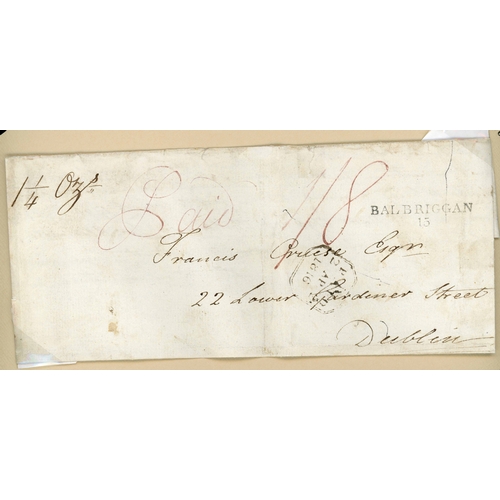 1 1/4 Ozs
Paid 1/8
BALBRIGGAN
15
Francis Esqr
22 Lower Gardener Street
Dublin
AP
1816